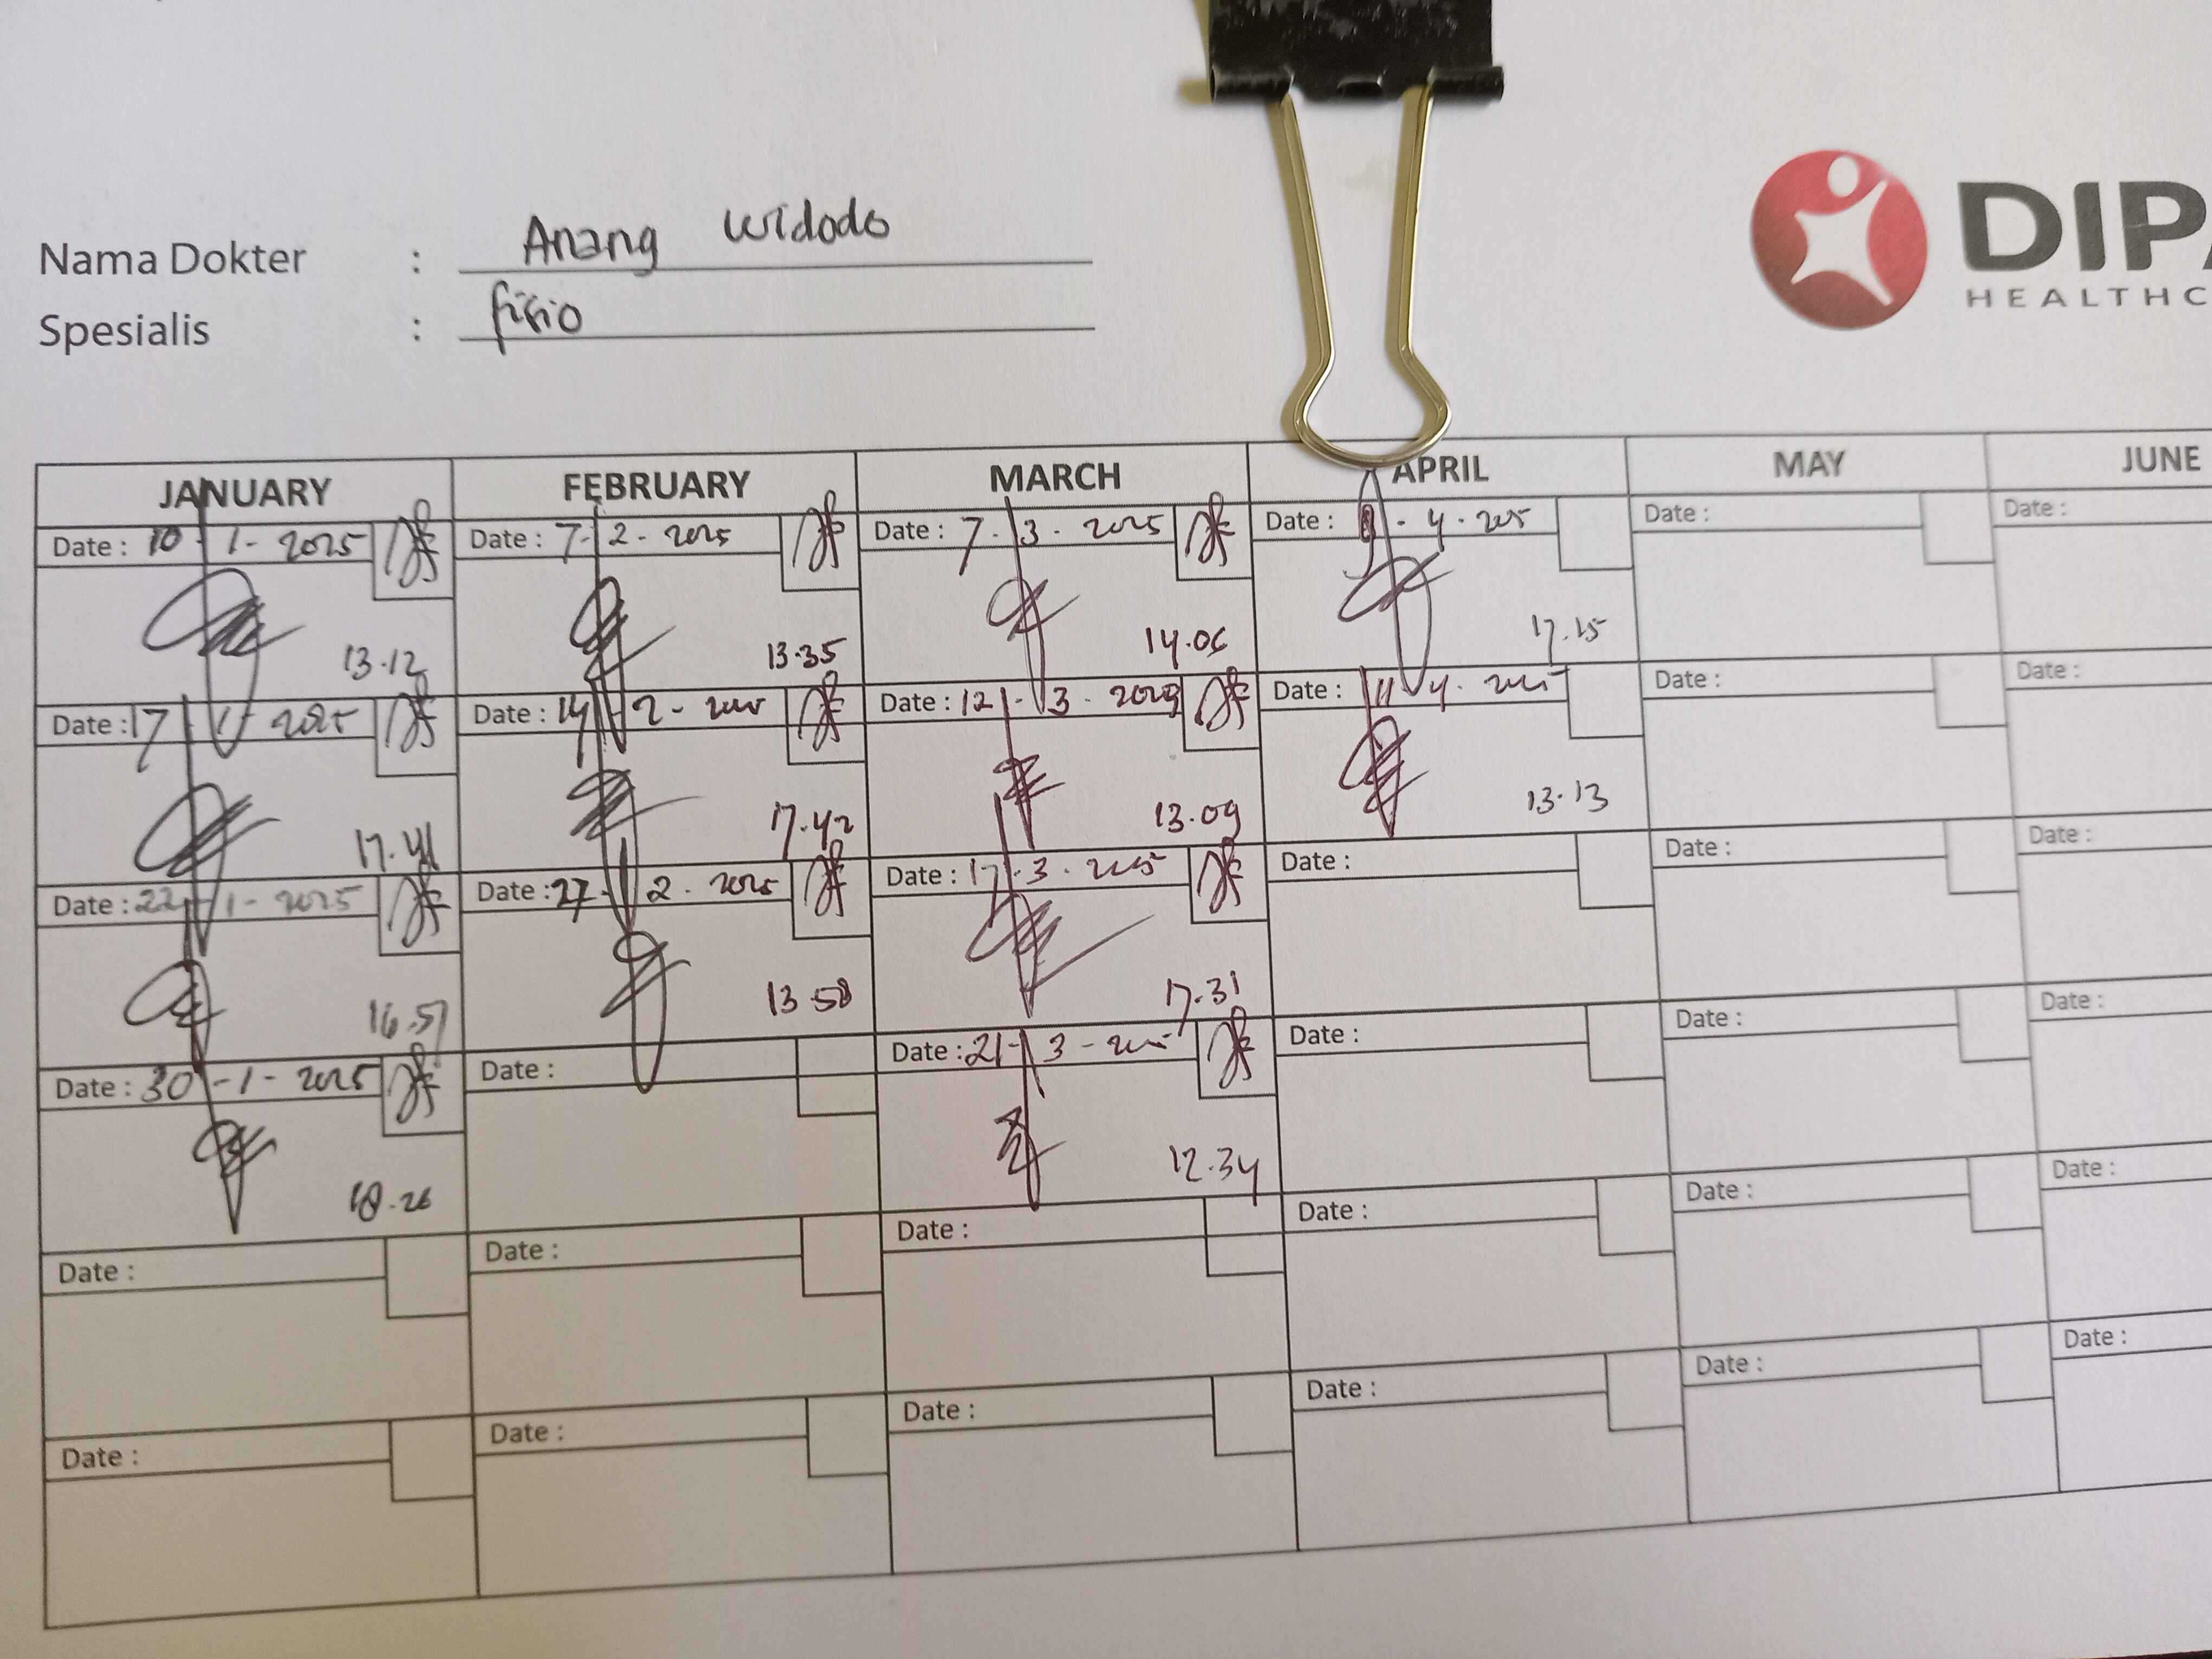 Nama Dokter : Anang Widodo
Spesialis : fisio
DIPA
HEALTHC
JANUARY FEBRUARY MARCH APRIL MAY JUNE
Date : 10 - 1 - 2025 Date : 7 - 2 - 2025 Date : 7 - 3 - 2025 Date : - 4 - 2025 Date : Date :
13.12 13.35 14.06 17.15
Date : 17 - 1 - 2025 Date : 14 - 2 - 2025 Date : 12 - 3 - 2025 Date : 11 - 4 - 2025 Date : Date :
17.41 17.42 13.09 13.13
Date : 22 - 1 - 2025 Date : 27 - 2 - 2025 Date : 17 - 3 - 2025 Date : Date : Date :
16.57 13.58 17.31
Date : 30 - 1 - 2025 Date : Date : 21 - 3 - 2025 Date : Date : Date :
18.26 12.34
Date : Date : Date : Date : Date : Date :
Date : Date : Date : Date : Date : Date :